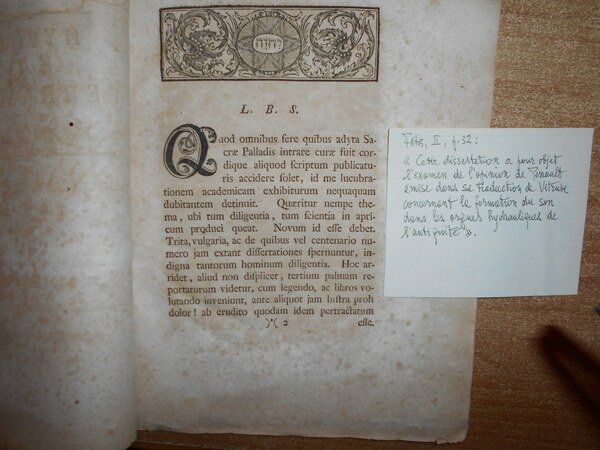 יהוה
L. B. S.
Quod omnibus fere quibus adyta Sa-
cræ Palladis intrare curæ fuit cor-
dique aliquod scriptum publicatu-
ris accidere solet, id me lucubra-
tionem academicam exhibiturum nequaquam
dubitantem detinuit. Quæritur nempe the-
ma, ubi tum diligentia, tum scientia in apri-
cum produci queat. Novum id esse debet.
Trita, vulgaria, ac de quibus vel centenario nu-
mero jam extant dissertationes spernuntur, in-
digna tantorum hominum diligentia. Hoc ar-
ridet, aliud non displicet, tertium palmam re-
portaturum videtur, cum legendo, ac libros vo-
lutando inveniunt, ante aliquot jam lustra proh
dolor! ab erudito quodam idem pertractatum
)*( 2 esse.
Fétis, II, p. 32:
« Cette dissertation a pour objet
l'examen de l'opinion de Perrault
émise dans sa Traduction de Vitruve
concernant la formation du son
dans les orgues hydrauliques de
l'antiquité ».